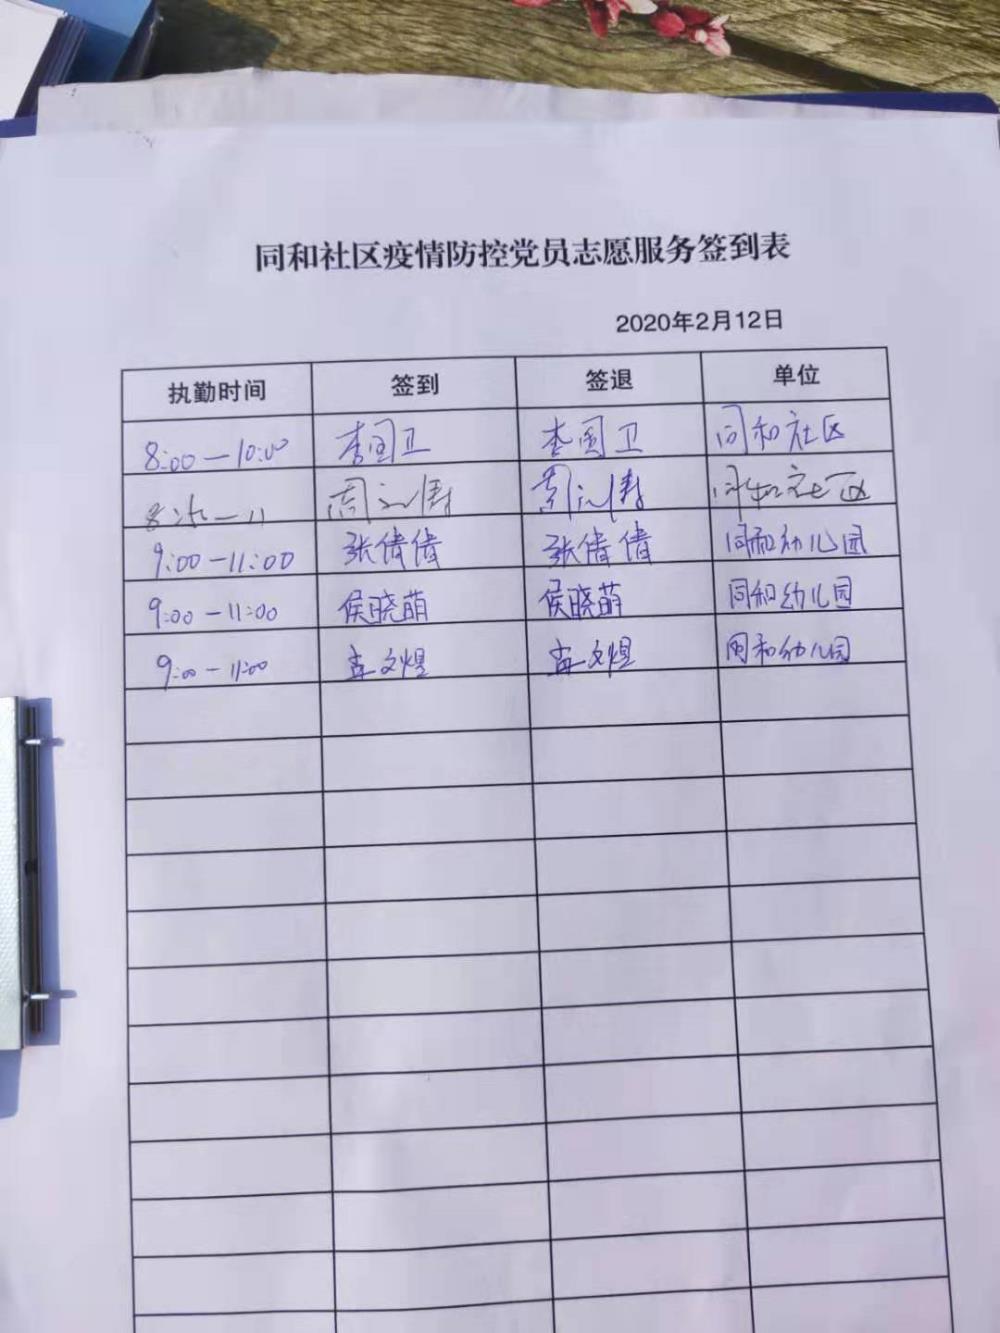 同和社区疫情防控党员志愿服务签到表
2020年2月12日
执勤时间 签到 签退 单位
8:00—10:00 李国卫 李国卫 同和社区
周 周 同和社区
9:00—11:00 张倩倩 张倩倩 同和幼儿园
9:00—11:00 侯晓萌 侯晓萌 同和幼儿园
9:00—11:00 文煜 文煜 同和幼儿园